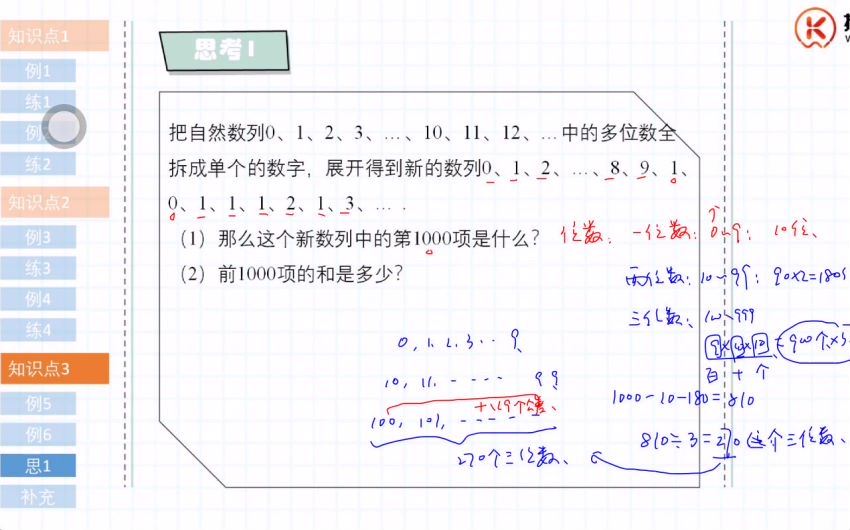 知识点1
例1
练1
例2
练2
知识点2
例3
练3
例4
练4
知识点3
例5
例6
思1
补充
思考1
把自然数列0、1、2、3、…、10、11、12、…中的多位数全
拆成单个的数字，展开得到新的数列0、1、2、…、8、9、1、
0、1、1、1、2、1、3、….
（1）那么这个新数列中的第1000项是什么？
（2）前1000项的和是多少？
位数：一位数：0~9：10位、
两位数：10~99：90×2=180
三位数：100~999
9×10×10=900个×3
百 十 个
1000-10-180=810
810÷3=270 这个三位数、
0, 1, 2, 3 … 9
10, 11, - - - - 99
100, 101, - - - - -
270个三位数、
K